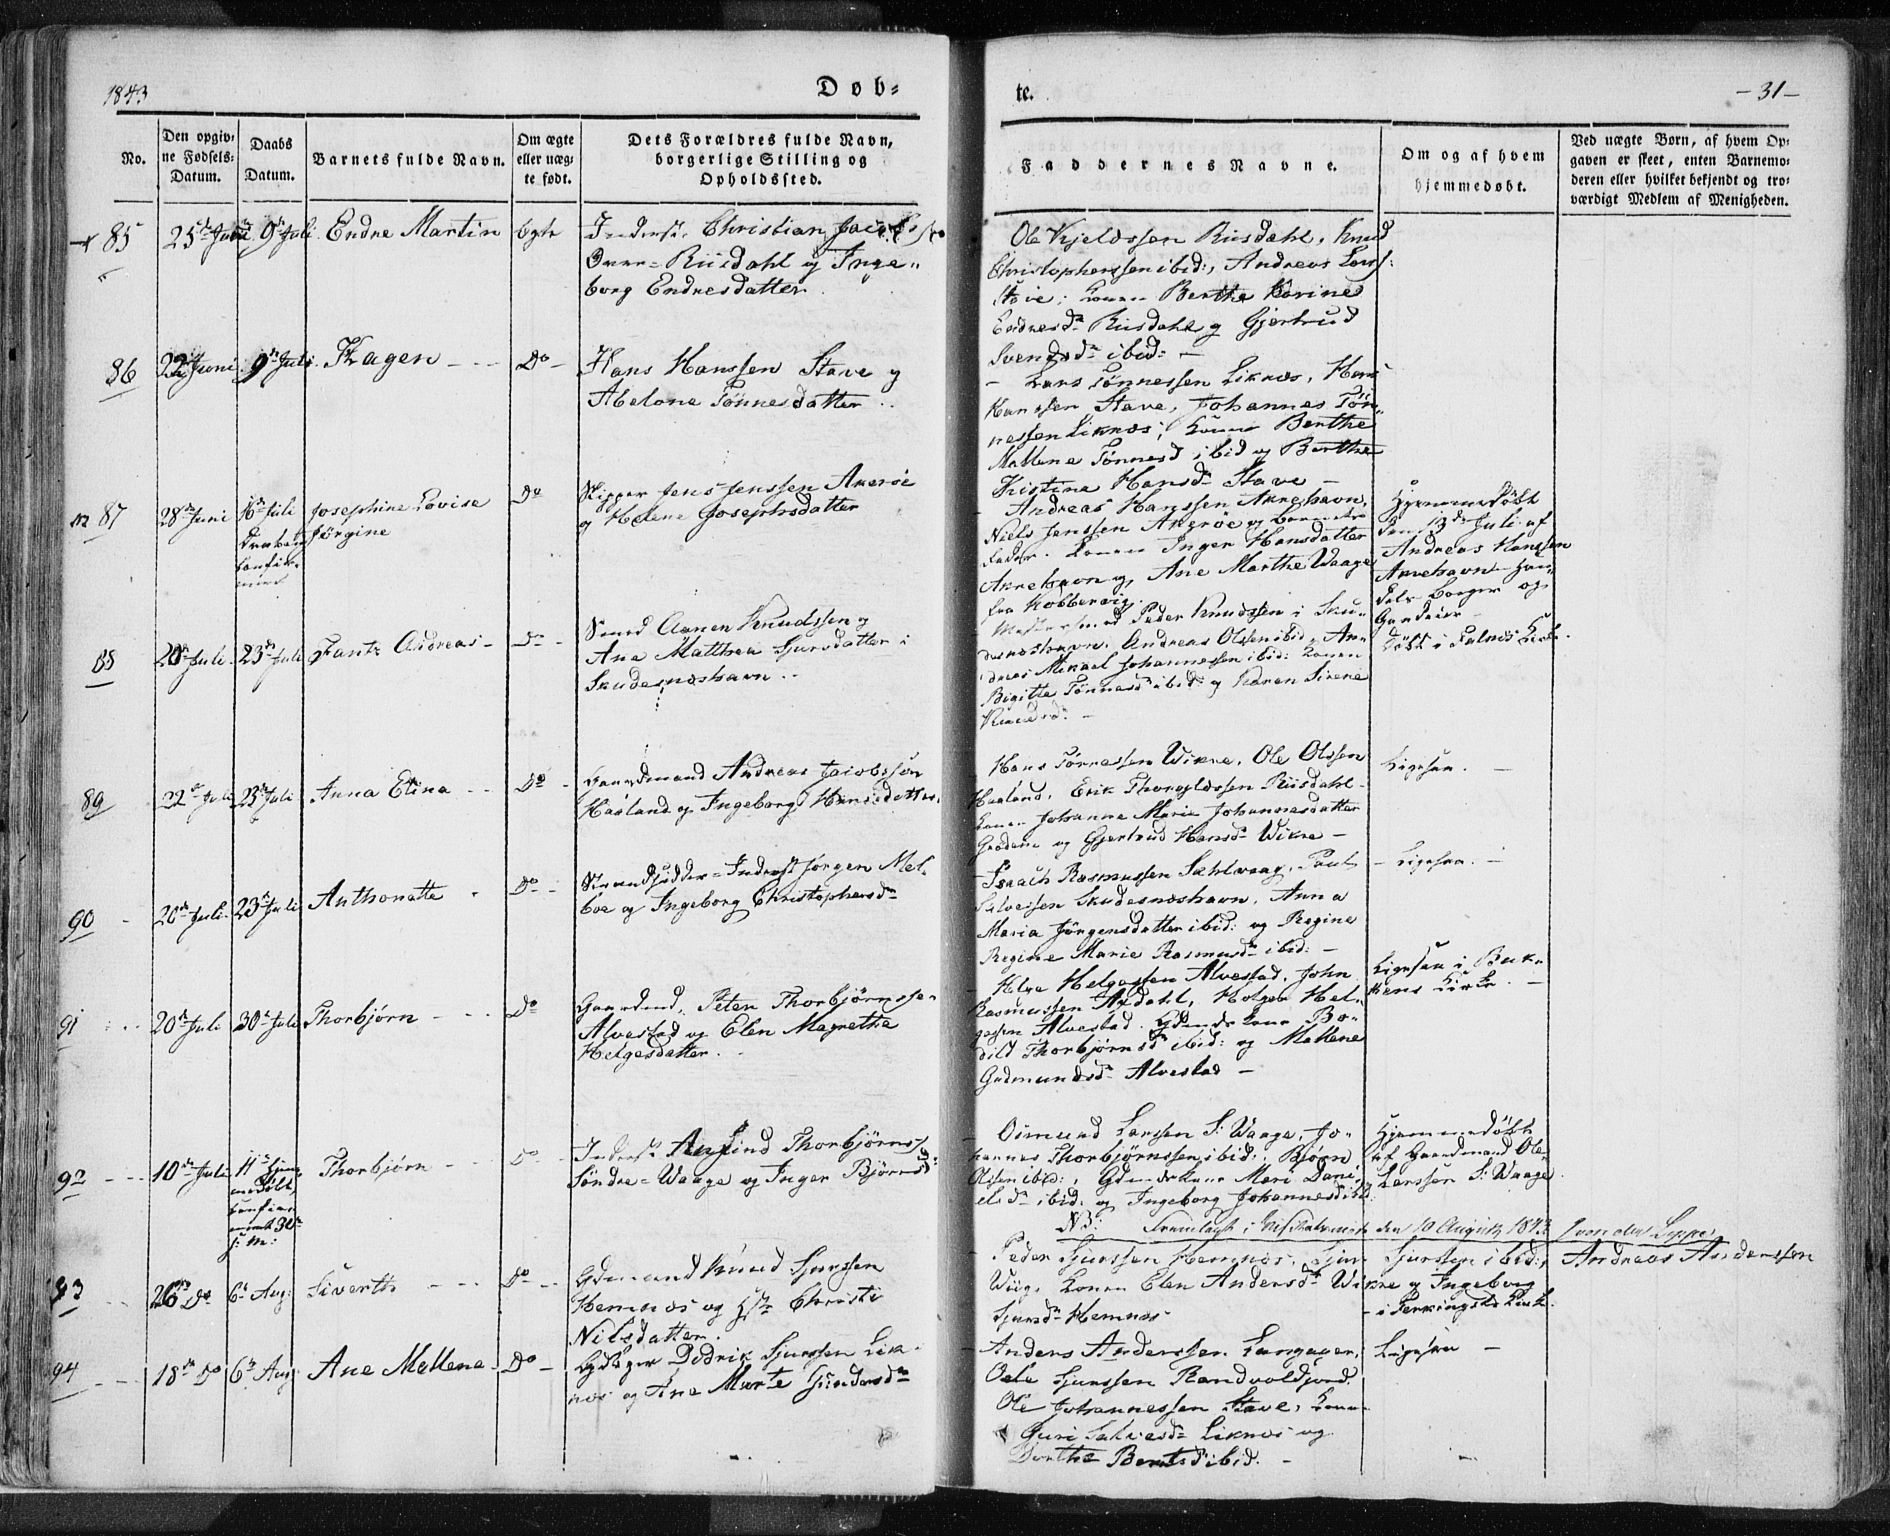 1843
Døb-
te.
- 31 -
No.
Den opgiv-
ne Fødsels-
Datum.
Daabs
Datum.
Barnets fulde Navn.
Om ægte
eller uæg-
te født.
Dets Forældres fulde Navn,
borgerlige Stilling og
Opholdssted.
Faddernes Navne.
Om og af hvem
hjemmedøbt.
Ved uægte Børn, af hvem Op-
gaven er skeet, enten Barnemo-
deren eller hvilket bekjendt og tro-
værdigt Medlem af Menigheden.
85
25de Juni 9de Juli
Endre Martin
Ægte
Inderst. Christian
Riisdahl og Inge-
borg Endresdatter.
Ole Kjeldssen Riisdahl, Knud
Christopherssen ibid:, Andreas
Berthe Karine
Endresd. Riisdahl og Gjertrud
Svendsdr ibid: -
86
22 Juni 9de Juli
Hagen
Do
Hans Hanssen Stave og
Abelone Tönnesdatter
Lars Tönnessen Liknæs, Hans
Hanssen Stave, Johannes Tön-
nessen Liknæs, Konen Berthe
Mallene Tönnesd ibid og Berthe
Kistine Hansdr Stave -
87
28de Juni
16de Juli
Josephine Lovise
Jörgine
Do
Skipper Jens Jenssen Akeröe
og Helene Josephsdatter
Andreas Hanssen Akrehavn,
Niels Jenssen Akeröe og Barnets
Fader. Konen Inger Hansdatter
Akrehavn og Ane Marthe Waage
fra Kobbervig.
Hjemmedöbt
den 13de Juli af
Andreas Hanssen
Akrehavn
Borger og
88
20de Juli
23de Juli
Frantz Andreas
Do
Smed Aanen Knudssen og
Ane Matthea Sjursdatter i
Skudesnæshavn.
Peder Knudssen i Sku-
desnæshavn, Andreas Olssen ibid, An-
dreas Mikael Johannessen ibid: Konen
Birgitte Tönnesdr ibid: og Karen Sirene
Knudsd. -
Döbt i Falnæs Kirke.
89
22de Juli
23de Juli
Anna Elina
Do
Gaardmand Andreas Jacobssön
Haaland og Ingeborg Hansdatter.
Hans Tönnessen Wikre, Ole Olssen
Haaland, Erik Thorgildssen Riisdahl
Konen Johanne Marie Johannesdatter
og Gjertrud Hansdr Wikre -
Ligesaa. -
90
20de Juli
23de Juli
Anthonette
Do
Strandsidder-Inderst Jörgen Mel-
boe og Ingeborg Christophersdr
Isaach Rasmussen Sahlvaag, Paul
Salvesen Skudesnæshavn, Anna
Maria Jörgensdatter ibid: og Regine
Regine Marie Rasmusdr ibid: -
- Ligesaa. -
91
20de Juli
30de Juli
Thorbjörn
Do
Gaardmd. Peter Thorbjörnssen
Alvestad og Elen Magrethe
Helgesdatter.
Helge Helgessen Alvestad, John
Rasmussen Axdahl, Holger Hel-
gessen Alvestad. Gdmands Kone Bo-
dild Thorbjörnsdr ibid: og Mallene
Gudmundsdr Alvestad -
Ligesaa i Buk-
kens Kirke. -
92
10de Juli
11te Hjem-
medöbt
Thorbjörn
Do
Inderst Thorbjörnss.
Söndre-Waage og Inger Björnsd:
Osmund Larssen S: Waage, Jo-
hannes Thorbjörnssen ibid:, Björn
Olssen ibid:, Gdmands Kone Mari Dani-
elsdr ibid: og Ingeborg Johannesd ibid
Hjemmedöbt
af Gaardmand Ole
Larssen S: Waage.
NB: den 10 August 1843
Andreas Anderssen
93
26de Do
6te Aug:
Siverth
Do
Gdmand Knud Sjurssen
Hemnæs og Hstr Christi
Nilsdatter.
Peder Sjurssen Hemnæs, Sjur Sjurssen ibid:,
Wiig, Konen Elen Andersdr Wikre og Ingeborg
Sjursdr Hemnæs
- i Færkingstad Kirke.
94
18de Do
6te Aug:
Ane Mallene
Do
Didrik Sjurssen Lik-
næs og Ane Marte Gundersdr
Anders Anderssen Langaaker,
Osle Sjurssen
Ole Johannessen Stave, Kone
Guri Salvesdr Liknæs og
Dorthe Berntsd ibid. -
Ligesaa -